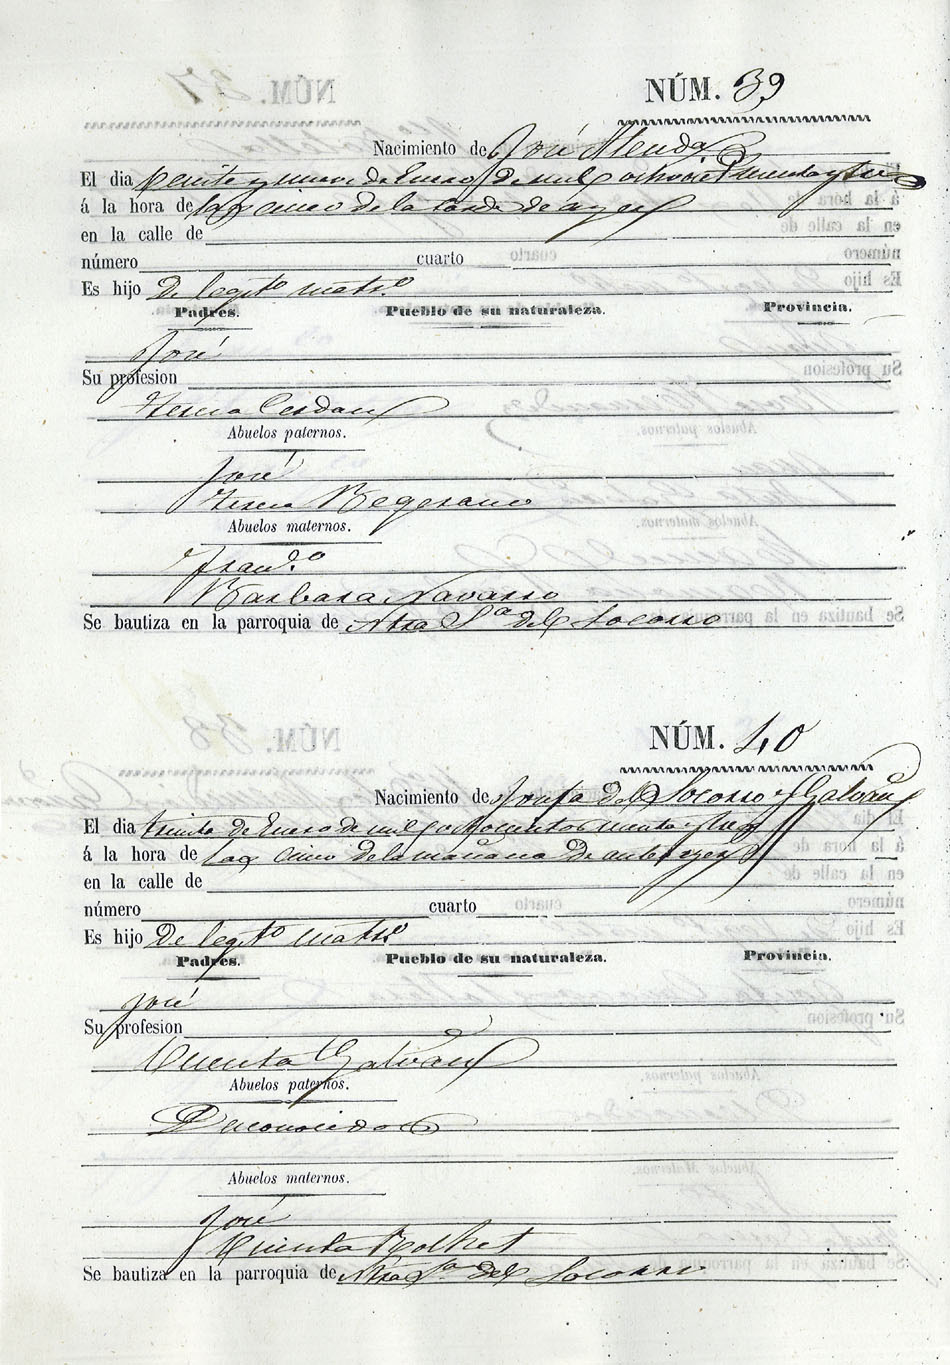 NÚM. 39
Nacimiento de José Alenda
El dia veinte y nueve de Enero de mil ochocientos y tres
á la hora de las cinco de la tarde de ayer
en la calle de
número cuarto
Es hijo de legto matro
Padres. Pueblo de su naturaleza. Provincia.
José
Su profesion
Teresa Cerdan
Abuelos paternos.
José
Teresa Begerano
Abuelos maternos.
Franco
Barbara Navarro
Se bautiza en la parroquia de Ntra Sa del Socorro
NÚM. 40
Nacimiento de Josefa del Socorro y Galvañ
El dia treinta de Enero de mil ochocientos y tres
á la hora de las cinco de la mañana de antes ayer
en la calle de
número cuarto
Es hijo De legto matro
Padres. Pueblo de su naturaleza. Provincia.
José
Su profesion
Vicenta Galvañ
Abuelos paternos.
Desconocidos
Abuelos maternos.
José
Vicenta
Se bautiza en la parroquia de Ntra Sa del Socorro